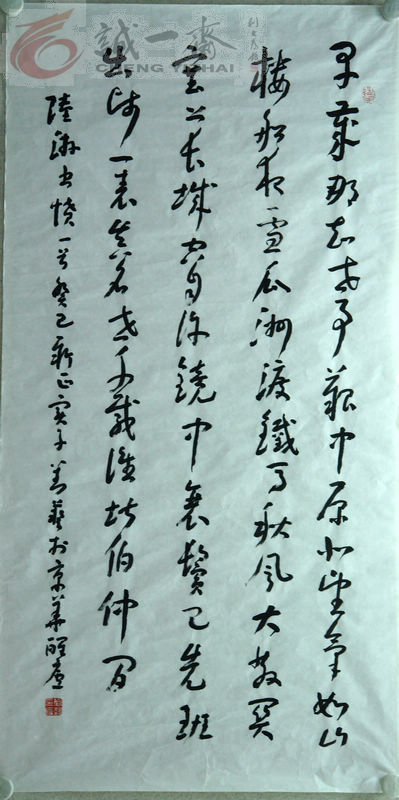 早歲那知世事艱中原北望氣如山
樓船夜雪瓜洲渡鐵馬秋風大散關
塞上長城空自許鏡中衰鬢已先班
出師一表真名世千載誰堪伯仲間
陸游书憤一首癸巳新正於京華醒廬
誠一齋
CHENG YI ZHAI